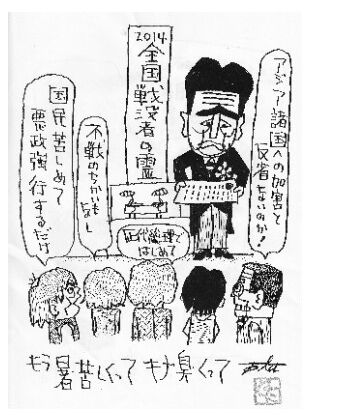 2014
全国戦没者の霊
アジア諸国への加害と
反省ないのか!
不戦のちかいもなし
国民苦しめて
悪政強行するだけ
歴代総理で
はじめて
もう暑苦しくって キナ臭くって